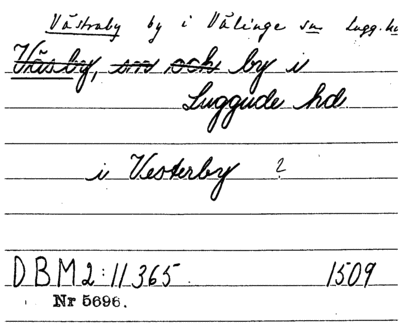 Västraby by i Välinge sn Lugg. hd
Väsby, sn och by i
Luggude hd
i Vesterby ?
DBM2:11365 1509
Nr 5696.